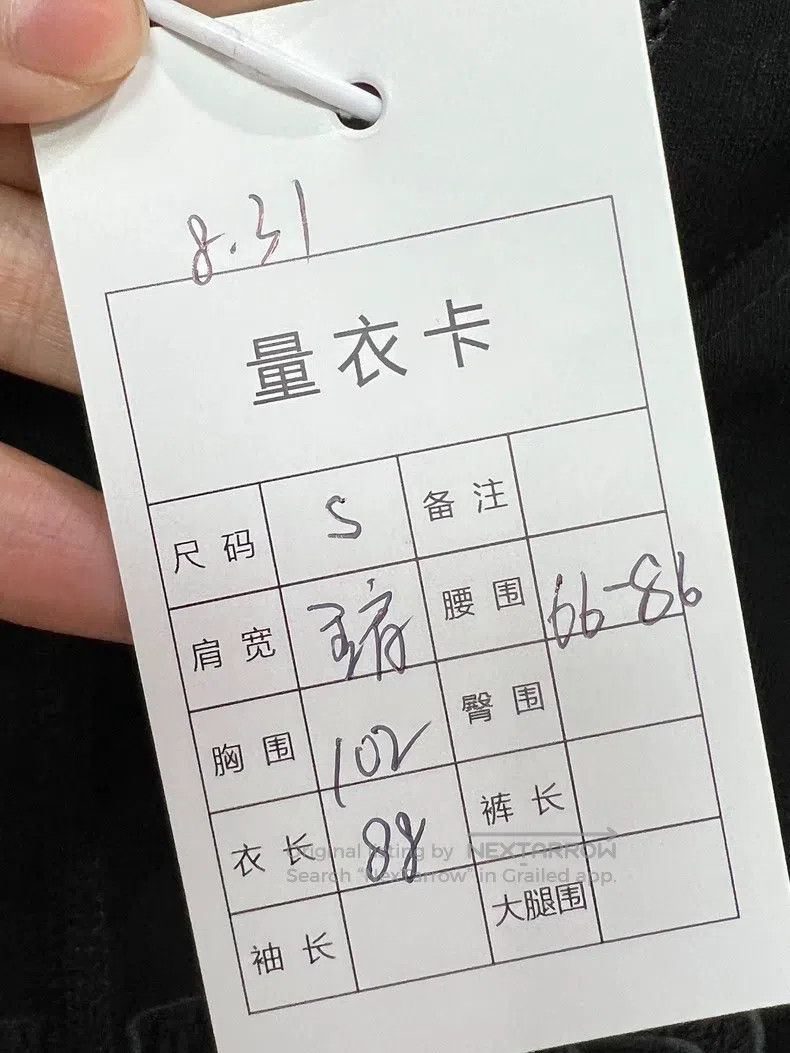 8.31
量衣卡
尺码 S 备注
肩宽 腰围 66-86
胸围 102 臀围
衣长 88 裤长
Original listing by NEXTARROW
Search "NextArrow" in Grailed app.
袖长 大腿围